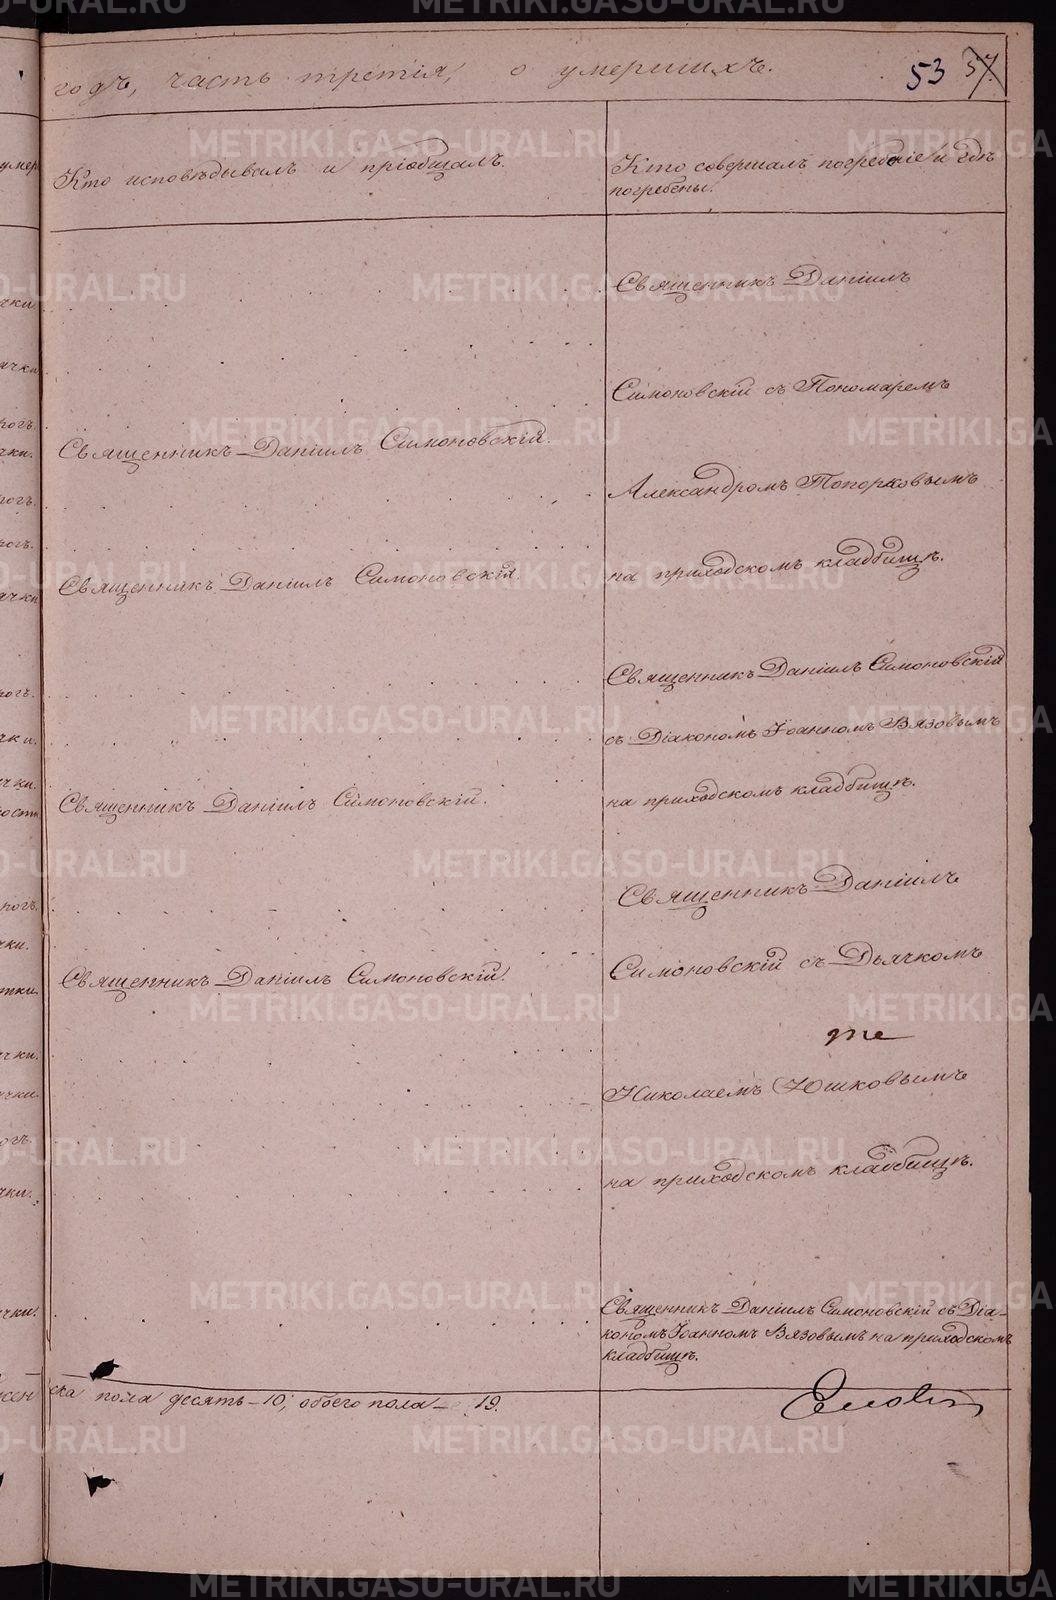 годъ, часть третія, о умершихъ.
53 37
Кто исповѣдывалъ и пріобщалъ.
Кто совершалъ погребеніе и гдѣ
погребены.
Священникъ Даніилъ
Симоновскій съ Пономаремъ
Священникъ Даніилъ Симоновскій.
Александромъ Топорковымъ
на приходскомъ кладбищѣ.
Священникъ Даніилъ Симоновскій.
Священникъ Даніилъ Симоновскій
съ Діакономъ Іоанномъ Вязовымъ
на приходскомъ кладбищѣ.
Священникъ Даніилъ Симоновскій.
Священникъ Даніилъ
Симоновскій съ Дьячкомъ
Священникъ Даніилъ Симоновскій.
Николаемъ Юшковымъ
на приходскомъ кладбищѣ.
Священникъ Даніилъ Симоновскій съ Діа-
кономъ Іоанномъ Вязовымъ на приходскомъ
кладбищѣ.
ска пола десять – 10; обоего пола – 19.
METRIKI.GASO-URAL.RU